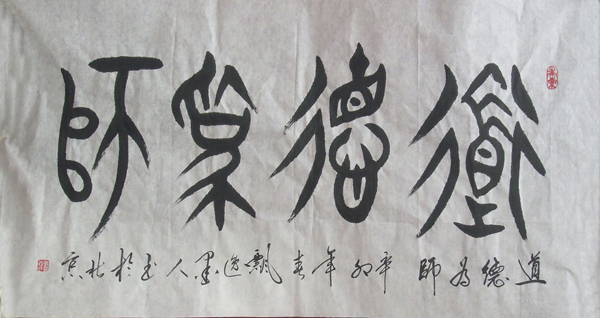 道德為師
道德為師 辛卯年春飘逸墨人书於北京